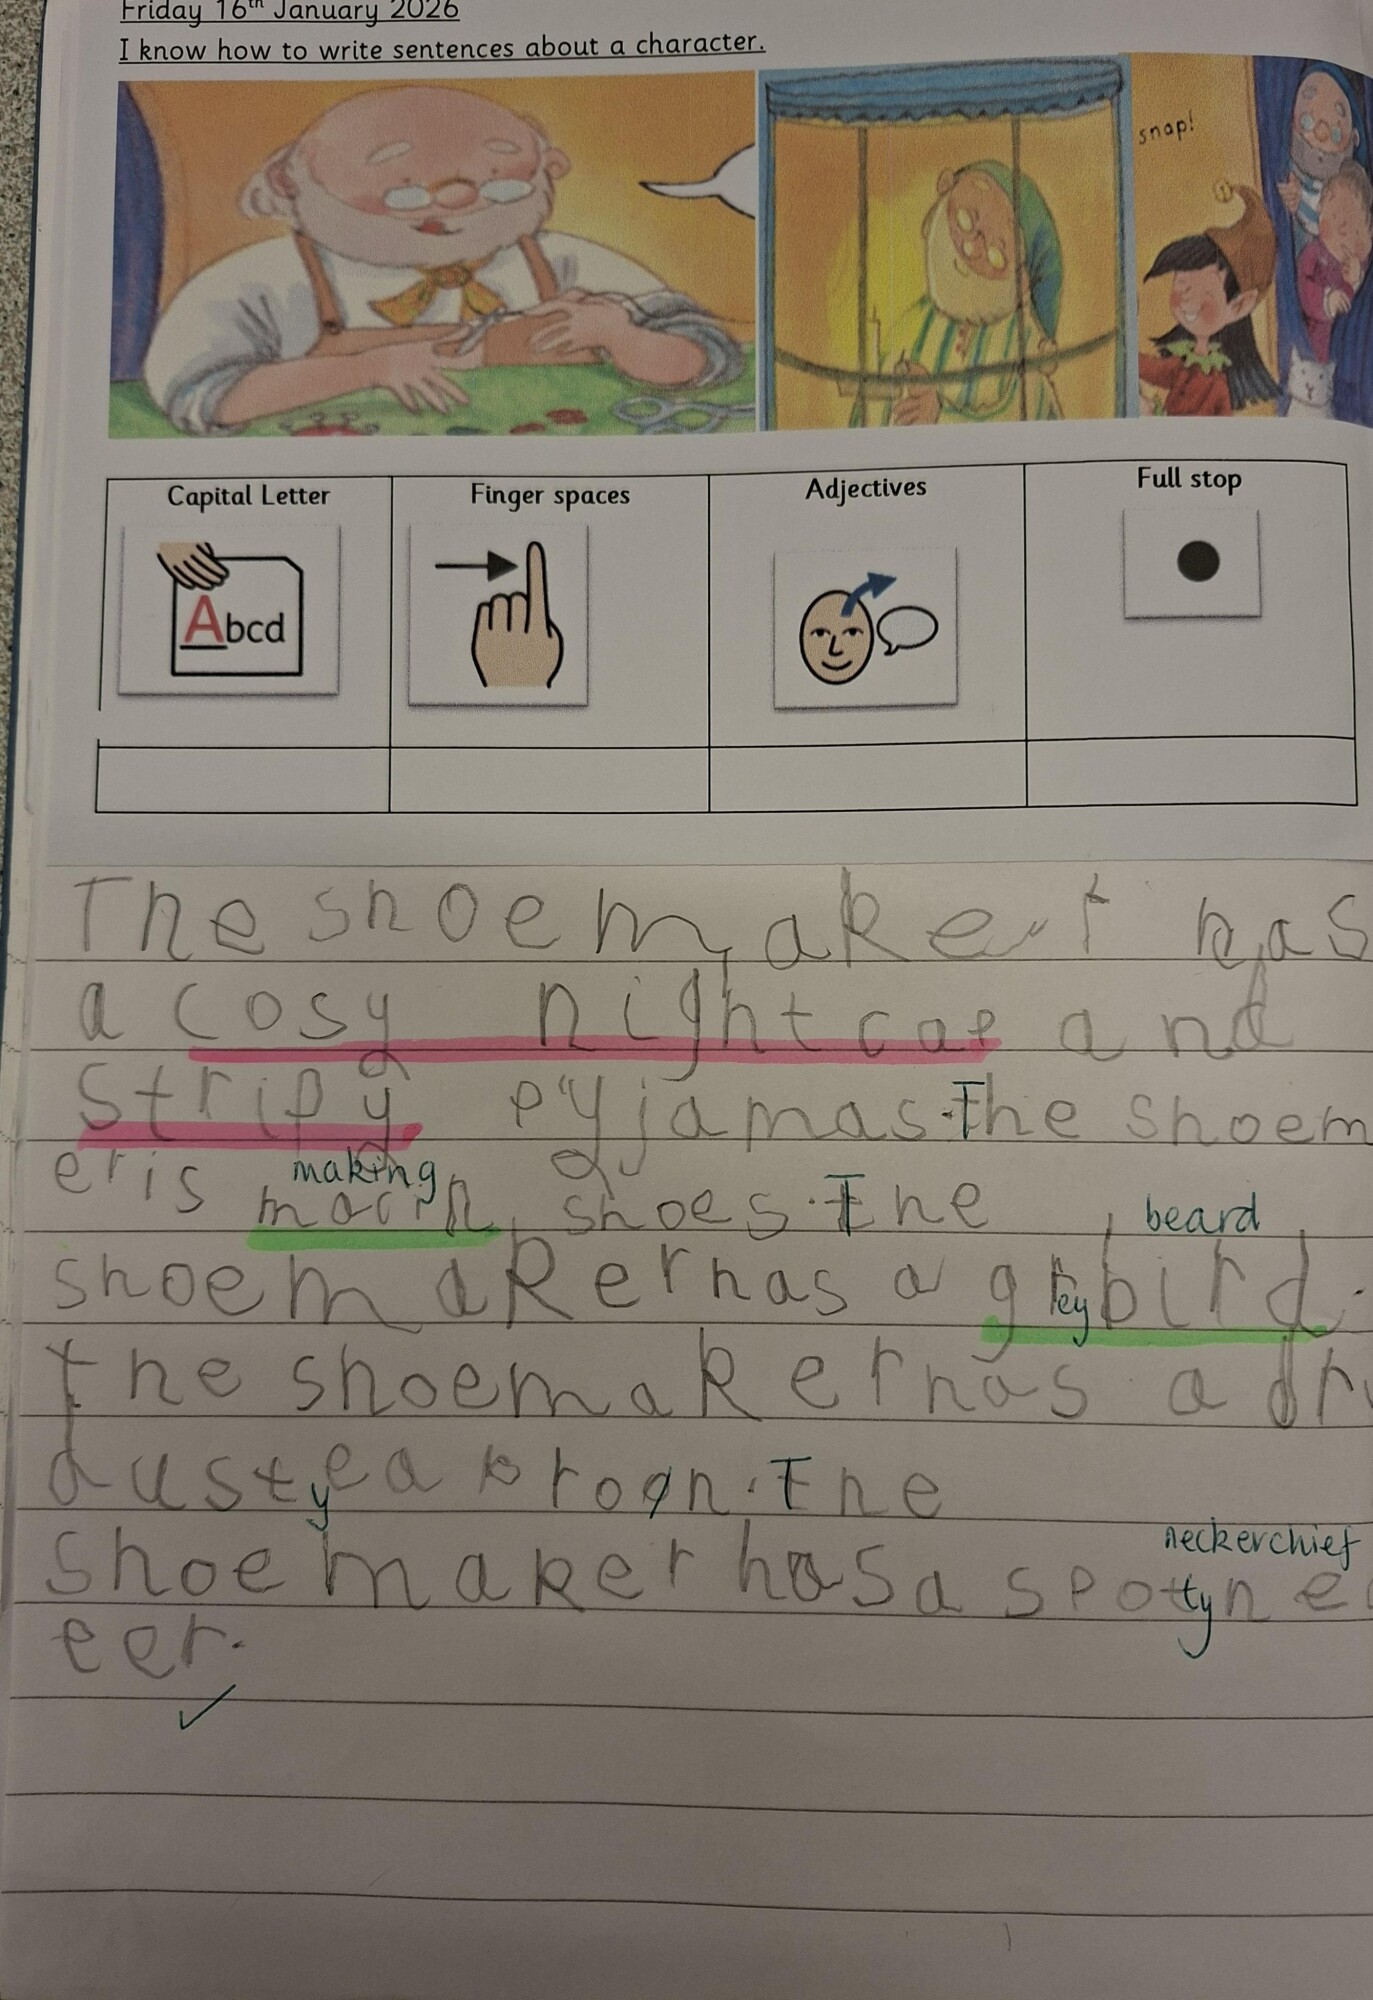 Friday 16th January 2026
I know how to write sentences about a character.
snap!
Capital Letter Finger spaces Adjectives Full stop
Abcd
The shoemaker has
a cosy nightcap and
stripy pyjamas. The shoem
making
er is shoes. The
beard
shoemaker has a grey bird.
the shoemaker has a
dustey apron. The
neckerchief
shoemaker has a spotty
eer.